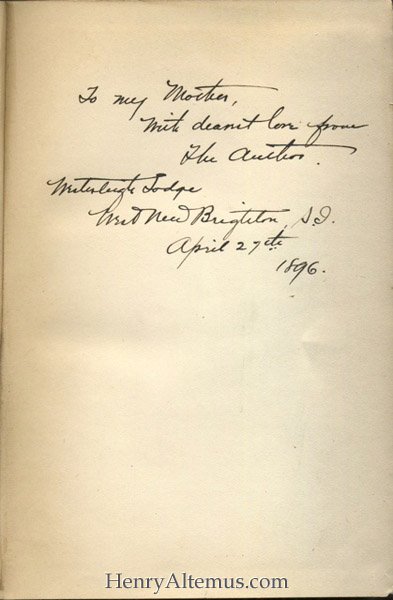 To my Mother,
With dearest love from
The Author.
Westerleigh Lodge
West New Brighton, S.I.
April 27th
1896.
HenryAltemus.com